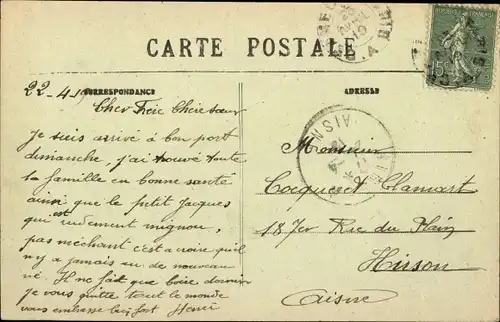 CARTE POSTALE
CORRESPONDANCE
ADRESSE
22-4-19
Cher Frère Chère Soeur
Je suis arrivé à bon port
dimanche, j'ai trouvé toute
la famille en bonne santé
ainsi que le petit Jacques
qui est rudement mignon,
pas méchant c'est a croire qu'il
n'y a jamais eu de nouveau
né Il ne fait que boire dormir
Je vous quitte tout le monde
vous embrasse bien fort Henri
Monsieur
Cocqueret Clamart
18 Rue du Plain
Hirson
Aisne